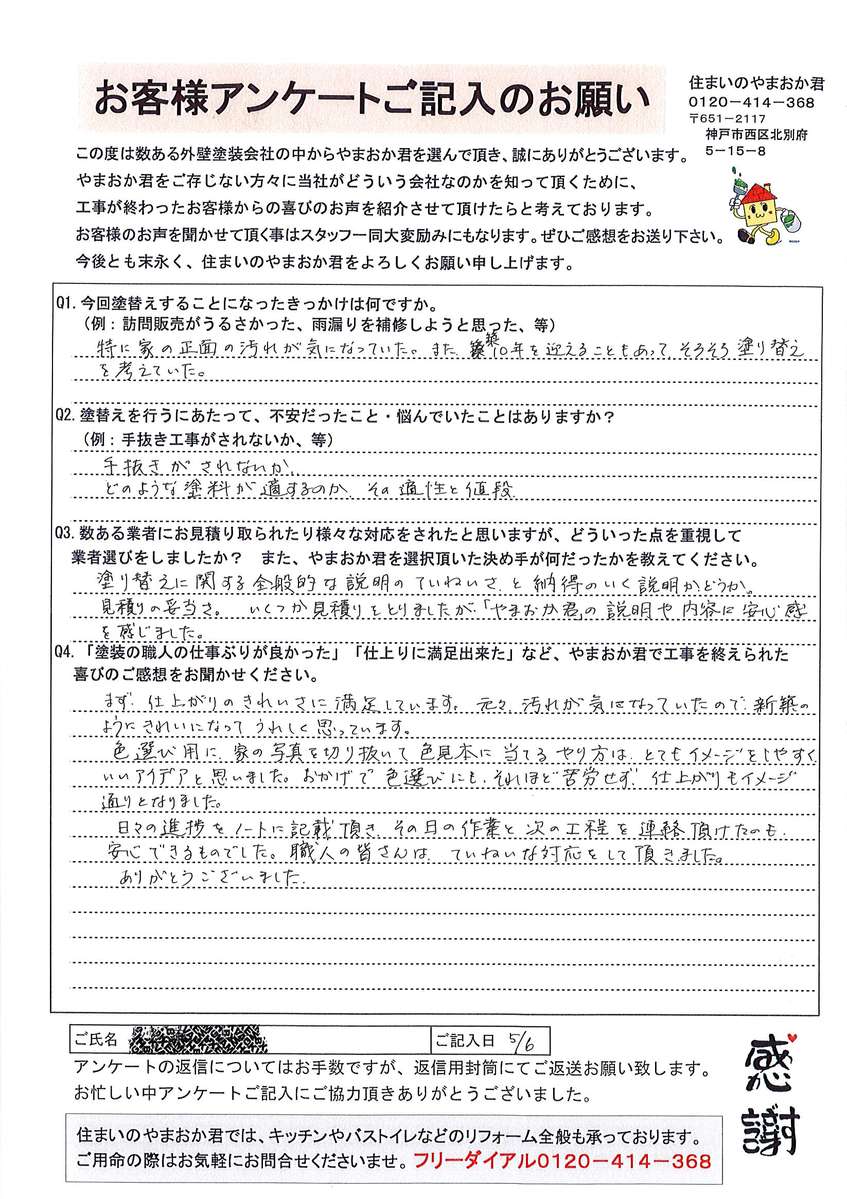 お客様アンケートご記入のお願い
住まいのやまおか君
0120－414－368
〒651－2117
神戸市西区北別府
5－15－8
この度は数ある外壁塗装会社の中からやまおか君を選んで頂き、誠にありがとうございます。
やまおか君をご存じない方々に当社がどういう会社なのかを知って頂くために、
工事が終わったお客様からの喜びのお声を紹介させて頂けたらと考えております。
お客様のお声を聞かせて頂く事はスタッフ一同大変励みにもなります。ぜひご感想をお送り下さい。
今後とも末永く、住まいのやまおか君をよろしくお願い申し上げます。
Q1. 今回塗替えすることになったきっかけは何ですか。
（例：訪問販売がうるさかった、雨漏りを補修しようと思った、等）
特に家の正面の汚れが気になっていた。また、築10年を迎えることもあって、そろそろ塗り替え
を考えていた。
Q2. 塗替えを行うにあたって、不安だったこと・悩んでいたことはありますか？
（例：手抜き工事がされないか、等）
手抜きがされないか、
どのような塗料が適するのか、その適性と値段
Q3. 数ある業者にお見積り取られたり様々な対応をされたと思いますが、どういった点を重視して
業者選びをしましたか？　また、やまおか君を選択頂いた決め手が何だったかを教えてください。
塗り替えに関する全般的な説明のていねいさ、と納得のいく説明かどうか。
見積りの妥当さ。 いくつか見積りをとりましたが、「やまおか君」の説明や内容に安心感
を感じました。
Q4. 「塗装の職人の仕事ぶりが良かった」「仕上りに満足出来た」など、やまおか君で工事を終えられた
喜びのご感想をお聞かせください。
まず、仕上がりのきれいさに満足しています。元々、汚れが気になっていたので、新築の
ようにきれいになってうれしく思っています。
色選び用に、家の写真を切り抜いて色見本に当てるやり方は、とてもイメージをしやすく
いいアイデアと思いました。おかげで色選びにも、それほど苦労せず、仕上がりもイメージ
通りとなりました。
日々の進捗をノートに記載頂き、その日の作業と次の工程を連絡頂けたのも、
安心できるものでした。職人の皆さんは、ていねいな対応をして頂きました。
ありがとうございました。
ご氏名
ご記入日 5/6
アンケートの返信についてはお手数ですが、返信用封筒にてご返送お願い致します。
お忙しい中アンケートご記入にご協力頂きありがとうございました。
感謝
住まいのやまおか君では、キッチンやバストイレなどのリフォーム全般も承っております。
ご用命の際はお気軽にお問合せくださいませ。フリーダイアル0120－414－368